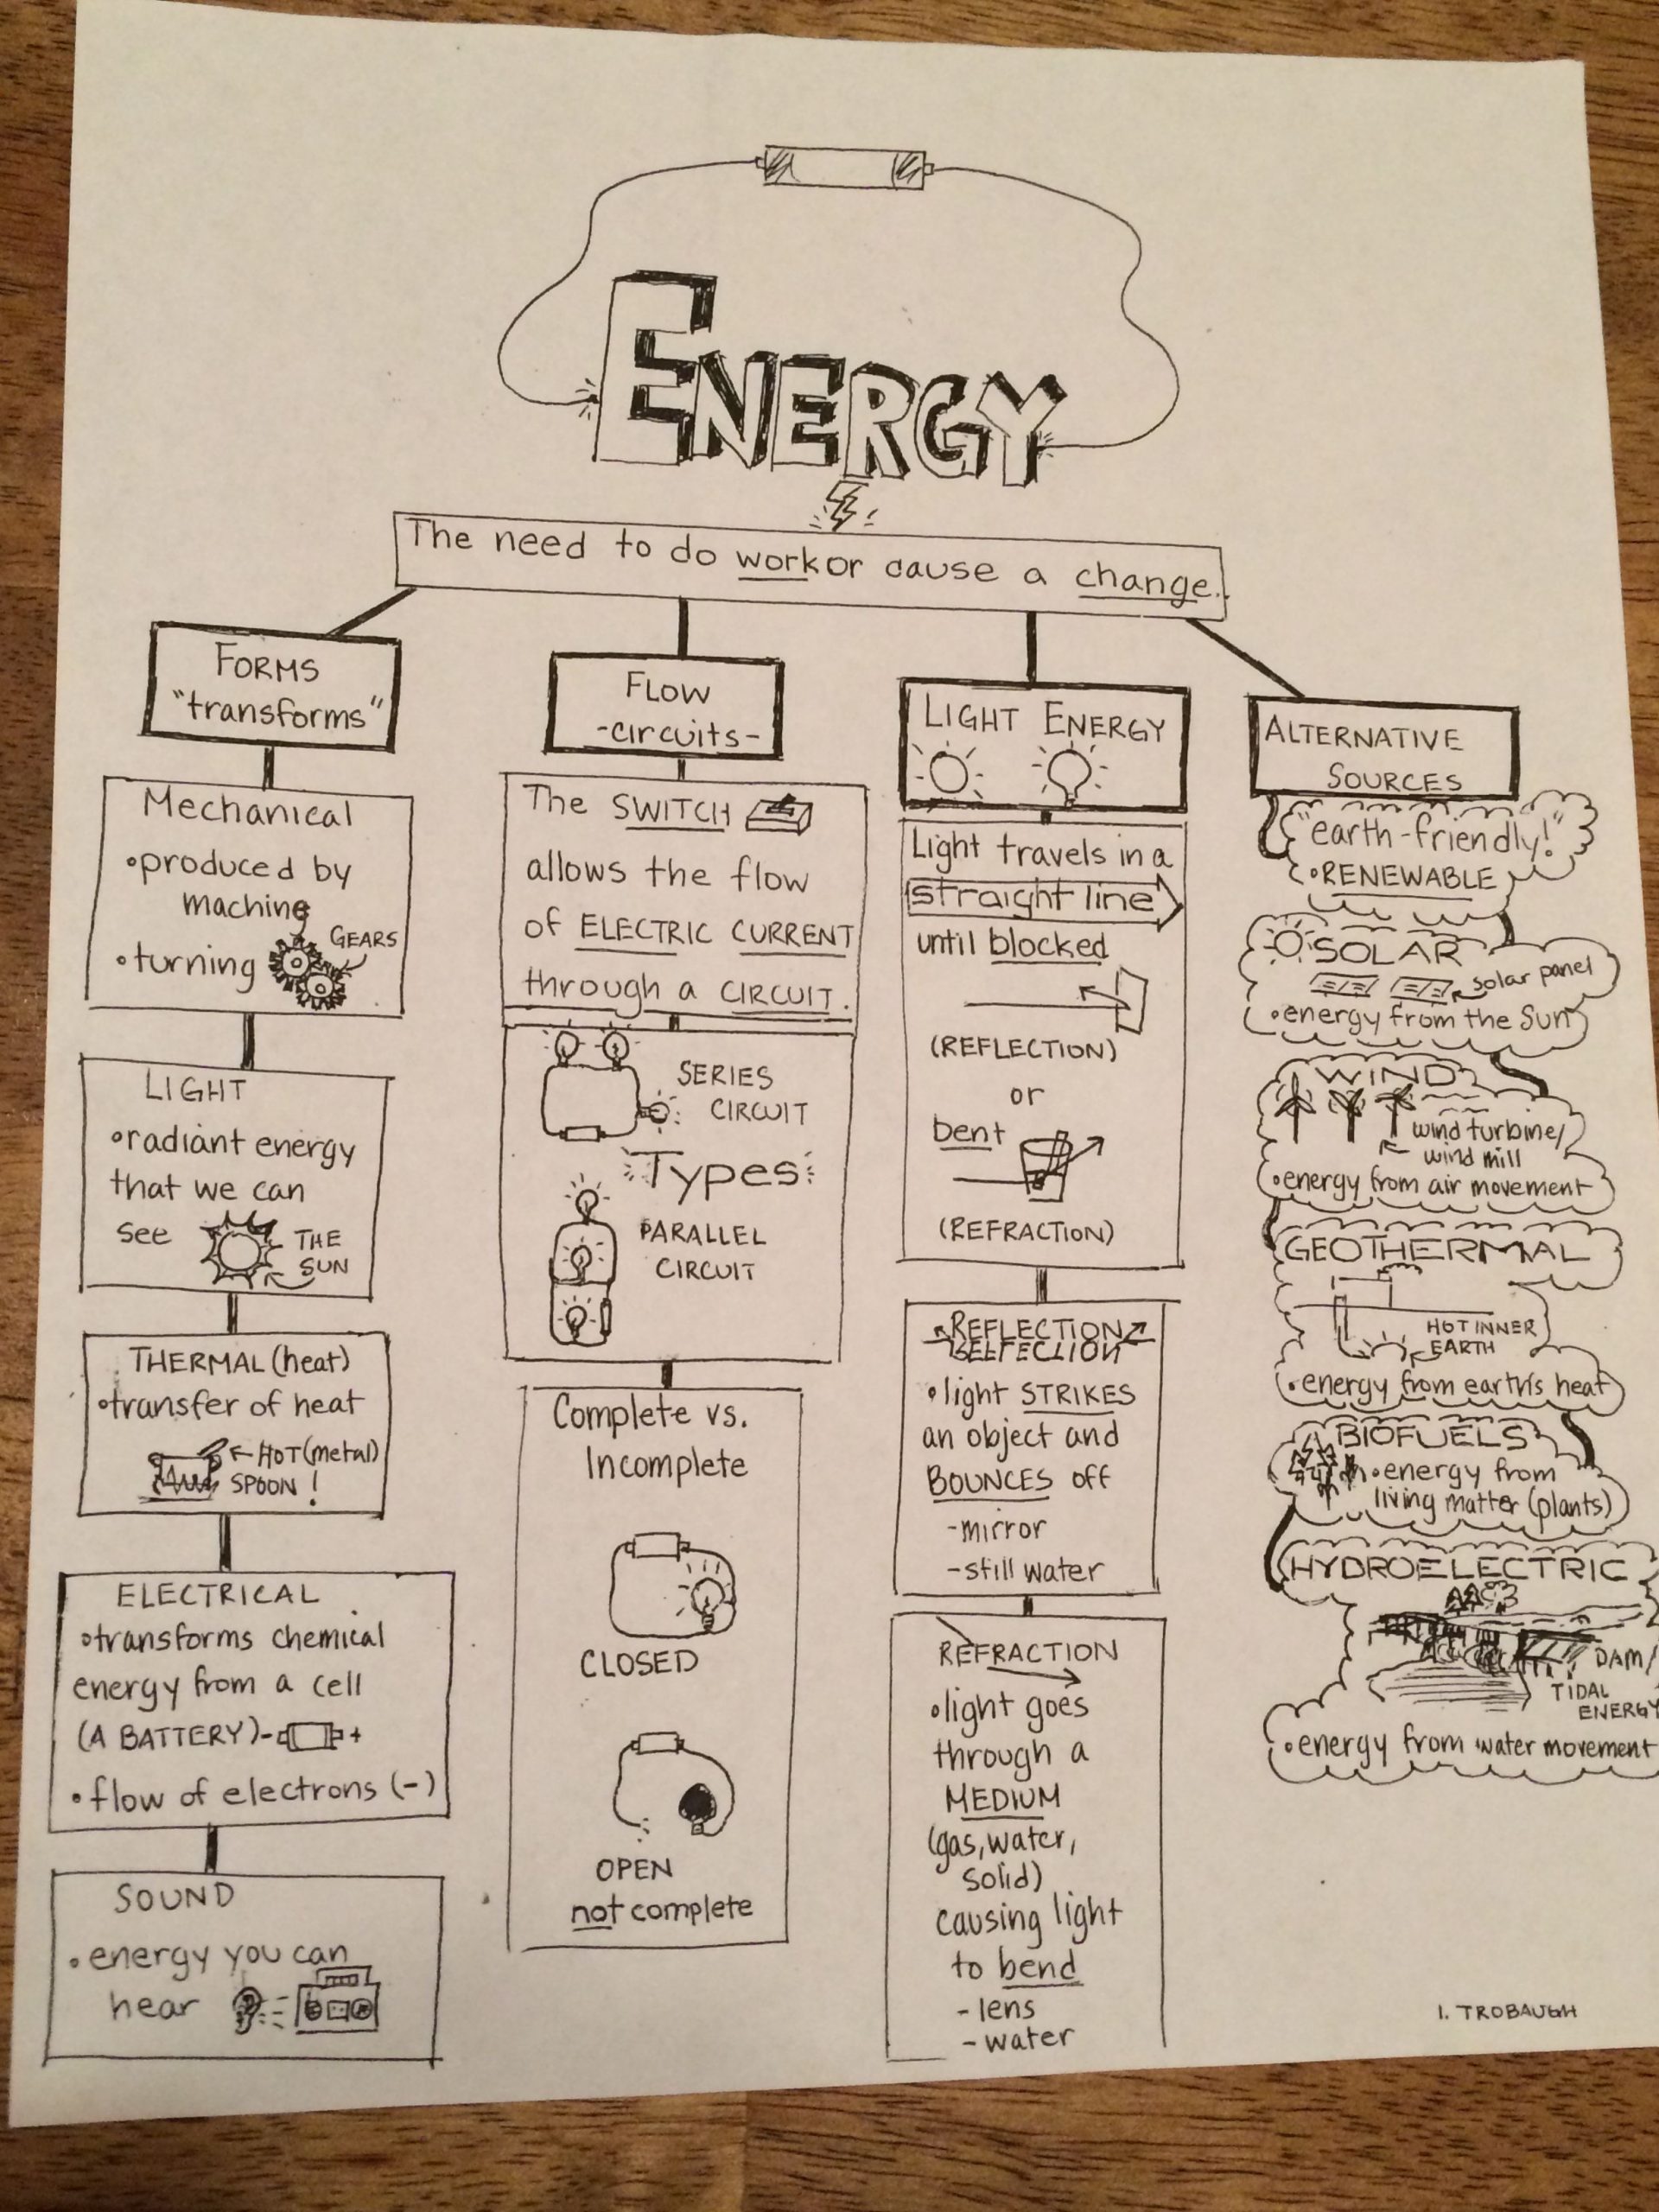 ENERGY
The need to do work or cause a change.
FORMS
"transforms"
Mechanical
•produced by
machine
•turning
GEARS
LIGHT
•radiant energy
that we can
see
THE
SUN
THERMAL (heat)
•transfer of heat
HOT (metal)
SPOON!
ELECTRICAL
•transforms chemical
energy from a cell
(A BATTERY) - +
•flow of electrons (-)
SOUND
•energy you can
hear
FLOW
-circuits-
The SWITCH
allows the flow
of ELECTRIC CURRENT
through a CIRCUIT.
SERIES
CIRCUIT
Types
PARALLEL
CIRCUIT
Complete vs.
Incomplete
CLOSED
OPEN
not complete
LIGHT ENERGY
Light travels in a
straight line
until blocked
(REFLECTION)
or
bent
(REFRACTION)
REFLECTION
REFLECTION
•light STRIKES
an object and
BOUNCES off
-mirror
-still water
REFRACTION
•light goes
through a
MEDIUM
(gas, water,
solid)
causing light
to bend
-lens
-water
ALTERNATIVE
SOURCES
"earth-friendly!"
•RENEWABLE
SOLAR
solar panel
•energy from the Sun
WIND
wind turbine/
wind mill
•energy from air movement
GEOTHERMAL
HOT INNER
EARTH
•energy from earth's heat
BIOFUELS
•energy from
living matter (plants)
HYDROELECTRIC
DAM/
TIDAL
ENERGY
•energy from water movement
I. TROBAUGH